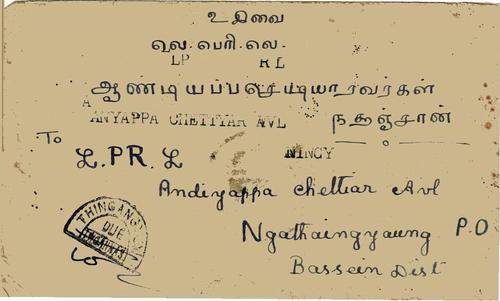 உ இவை
லெ. பெரி. லெ.
LP R L
ஆண்டியப்பஞ்செட்டியாரவர்கள்
A
ANYAPPA CHETTYAR AVL
நதஞ்சான்
To
L. PR. L
NINGY
Andiyappa chettiar Avl
Ngathaingyaung P.O
Bassein Dist
DUE